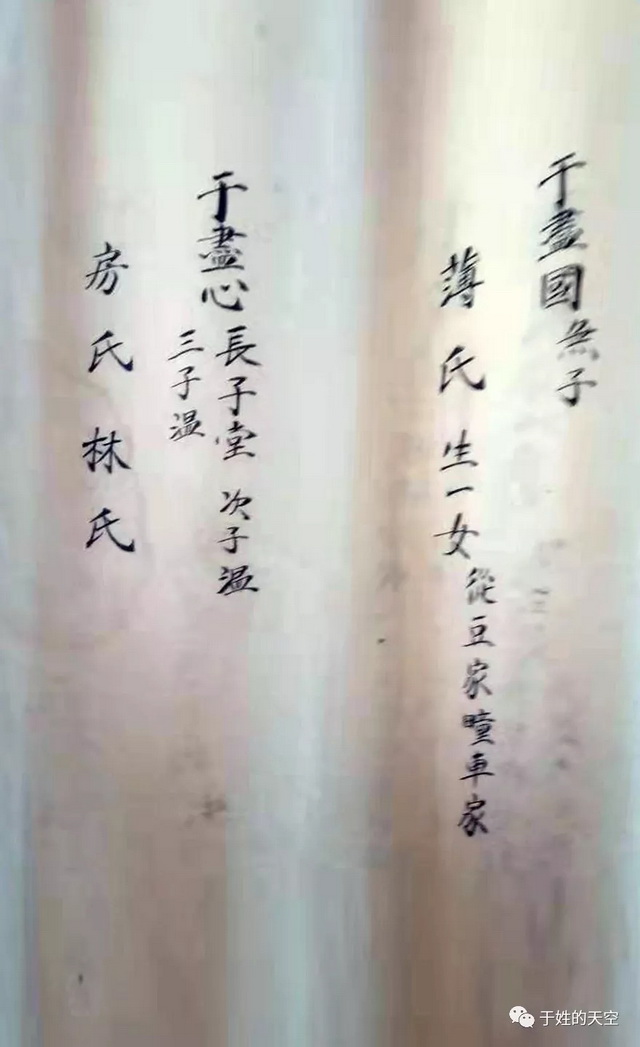 于盡國無子
薄氏生一女從豆家疃車家
于盡心長子堂次子溫
三子温
房氏林氏
于姓的天空